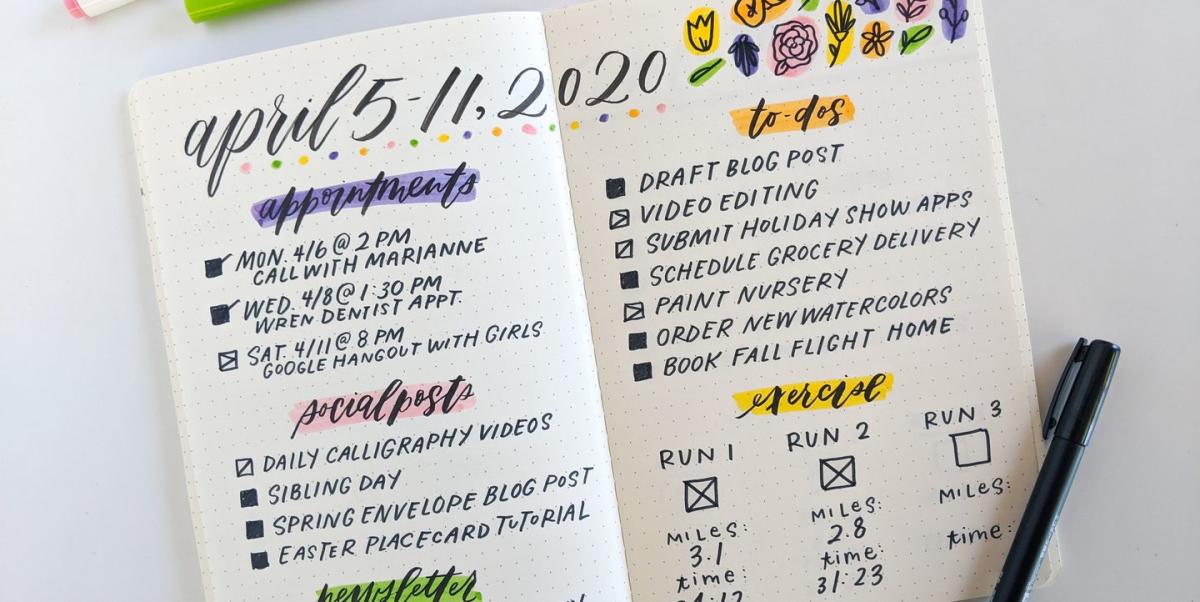 april 5-11, 2020
appointments
MON. 4/6 @ 2 PM
CALL WITH MARIANNE
WED. 4/8 @ 1:30 PM
WREN DENTIST APPT.
SAT. 4/11 @ 8 PM
GOOGLE HANGOUT WITH GIRLS
social posts
DAILY CALLIGRAPHY VIDEOS
SIBLING DAY
SPRING ENVELOPE BLOG POST
EASTER PLACECARD TUTORIAL
newsletter
to-dos
DRAFT BLOG POST
VIDEO EDITING
SUBMIT HOLIDAY SHOW APPS
SCHEDULE GROCERY DELIVERY
PAINT NURSERY
ORDER NEW WATERCOLORS
BOOK FALL FLIGHT HOME
exercise
RUN 1
MILES:
3.1
time:
RUN 2
MILES:
2.8
time:
31:23
RUN 3
MILES:
time: